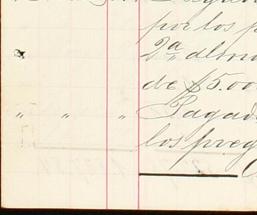 por los p
2ª almo
de $5.00
" " " Pagad
los preg